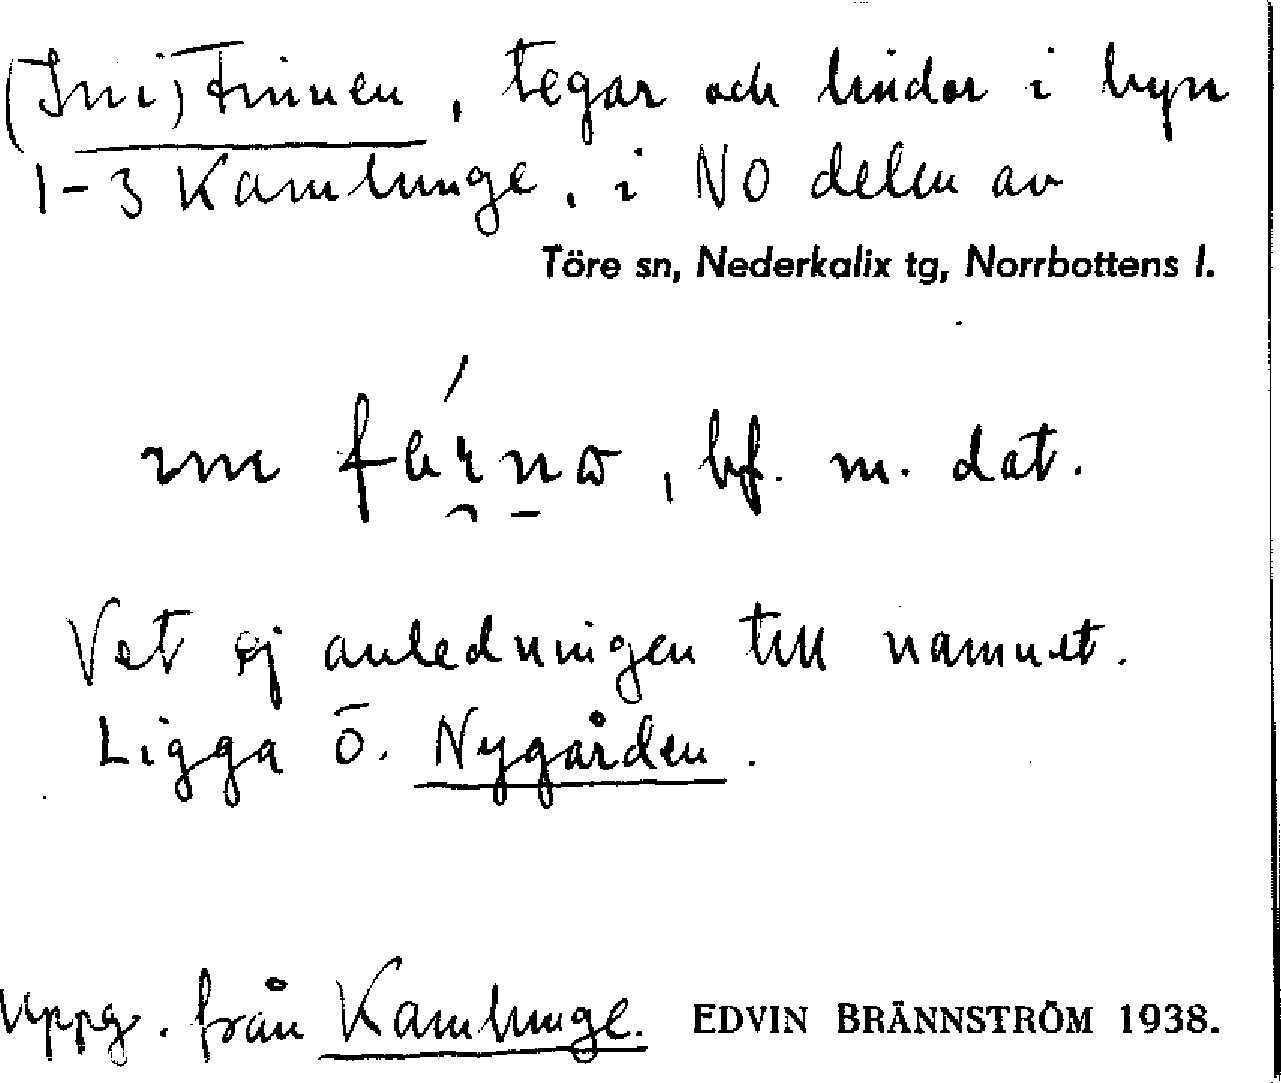 (Ini) Finnen, tegar och lindor i byn
1-3 Kamlunge, i NO delen av
Töre sn, Nederkalix tg, Norrbottens l.
bf. m. dat.
Vet ej anledningen till namnet.
Ligga ö. Nygården.
Uppg. från Kamlunge. EDVIN BRÄNNSTRÖM 1938.